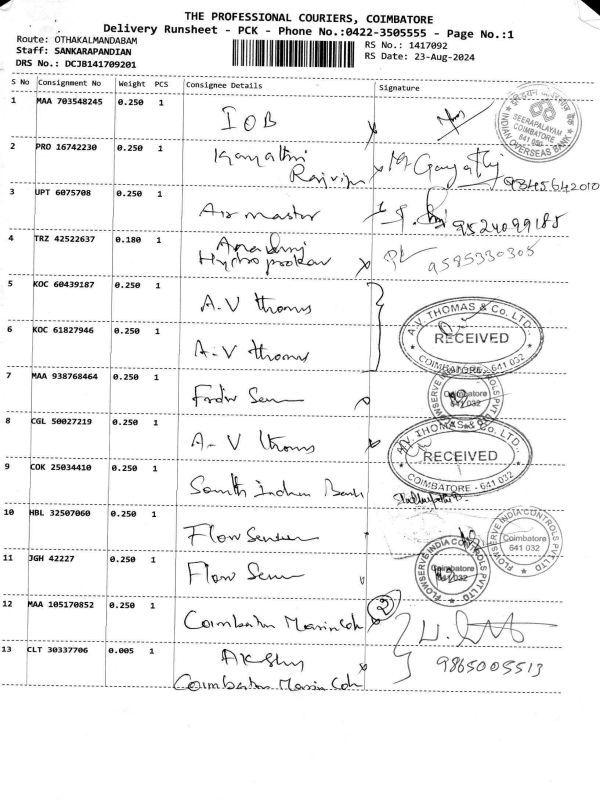 THE PROFESSIONAL COURIERS, COIMBATORE
Delivery Runsheet - PCK - Phone No.:0422-3505555 - Page No.:1
Route: OTHAKALMANDABAM
Staff: SANKARAPANDIAN
DRS No.: DCJB141709201
RS No.: 1417092
RS Date: 23-Aug-2024
S No Consignment No Weight PCS Consignee Details Signature
1 MAA 703548245 0.250 1 IOB
INDIAN OVERSEAS BANK
SEERAPALAYAM
COIMBATORE
2 PRO 16742230 0.250 1 Gayathri
9845642010
3 UPT 6075708 0.250 1 Air master
9524099185
4 TRZ 42522637 0.180 1
Hydro
9585330305
5 KOC 60439187 0.250 1 A.V Thomas
6 KOC 61827946 0.250 1 A.V Thomas
A.V. THOMAS & Co. LTD.,
RECEIVED
COIMBATORE - 641 032
7 MAA 938768464 0.250 1
Coimbatore
641 032
8 CGL 50027219 0.250 1 A.V Thomas
A.V. THOMAS & Co. LTD.,
RECEIVED
COIMBATORE - 641 032
9 COK 25034410 0.250 1 South Indian Bank
10 HBL 32507060 0.250 1 Flow
FLOWSERVE INDIA CONTROLS PVT LTD
Coimbatore
641 032
11 JGH 42227 0.250 1 Flow
FLOWSERVE INDIA CONTROLS PVT LTD
Coimbatore
641 032
12 MAA 105170852 0.250 1 Coimbatore Marin Cok
2
13 CLT 30337706 0.005 1
Coimbatore Marin Cok
9865005513